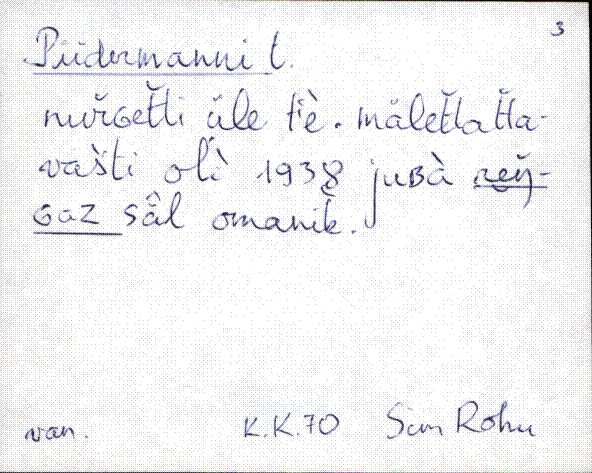 3
Püdermanni t.
nuřɢet̆ti üle t'è. mäletlat̆ta-
vašti oĺì 1938 juʙà reŋ̆-
ɢaz sâl omanik̆.
van. K.K.70 Sim Rohu